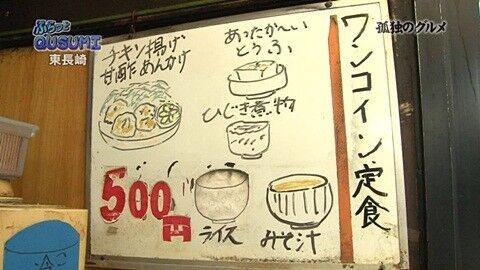 ふらっと
QUSUMI
東長崎
孤独のグルメ
ワンコイン定食
あったか〜い
とうふ
ひじき煮物
チキン揚げ
甘酢あんかけ
500円
ライス
みそ汁